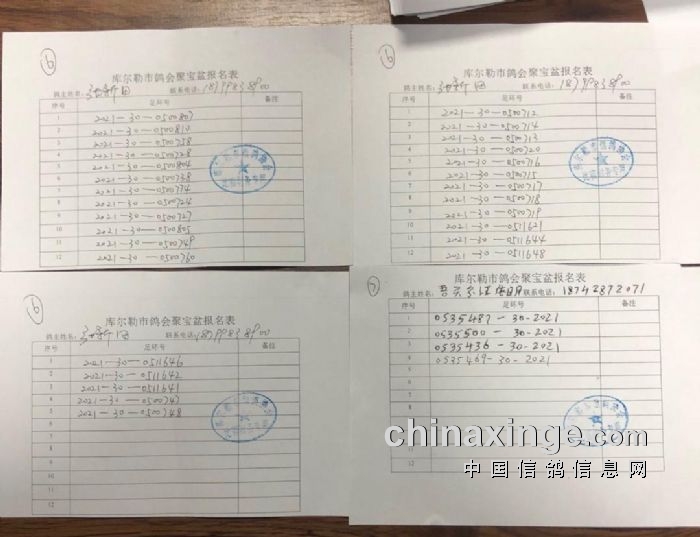 6
库尔勒市鸽会聚宝盆报名表
鸽主姓名: 新国 联系电话: 18799838900
序号 足环号 备注
1 2021-30-0500807
2 2021-30-0500810
3 2021-30-0500758
4 2021-30-0500728
5 2021-30-0500804
6 2021-30-0500738
7 2021-30-0500774
8 2021-30-0500724
9 2021-30-0500727
10 2021-30-0500805
11 2021-30-0500749
12 2021-30-0500760
6
库尔勒市鸽会聚宝盆报名表
鸽主姓名: 新国 联系电话: 18799838900
序号 足环号 备注
1 2021-30-0500712
2 2021-30-0500714
3 2021-30-0500713
4 2021-30-0500720
5 2021-30-0500716
6 2021-30-0500715
7 2021-30-0500717
8 2021-30-0500718
9 2021-30-0500719
10 2021-30-0511621
11 2021-30-0511644
12 2021-30-0511648
6
库尔勒市鸽会聚宝盆报名表
鸽主姓名: 新国 联系电话: 18799838900
序号 足环号 备注
1 2021-30-0511646
2 2021-30-0511642
3 2021-30-0511641
4 2021-30-0500747
5 2021-30-0500748
6
7
8
9
10
11
12
7
库尔勒市鸽会聚宝盆报名表
鸽主姓名: 联系电话: 18742872071
序号 足环号 备注
1 0535487-30-2021
2 0535500-30-2021
3 0535436-30-2021
4 0535469-30-2021
5
6
7
8
9
10
11
12
chinaxinge.com
中国信鸽信息网